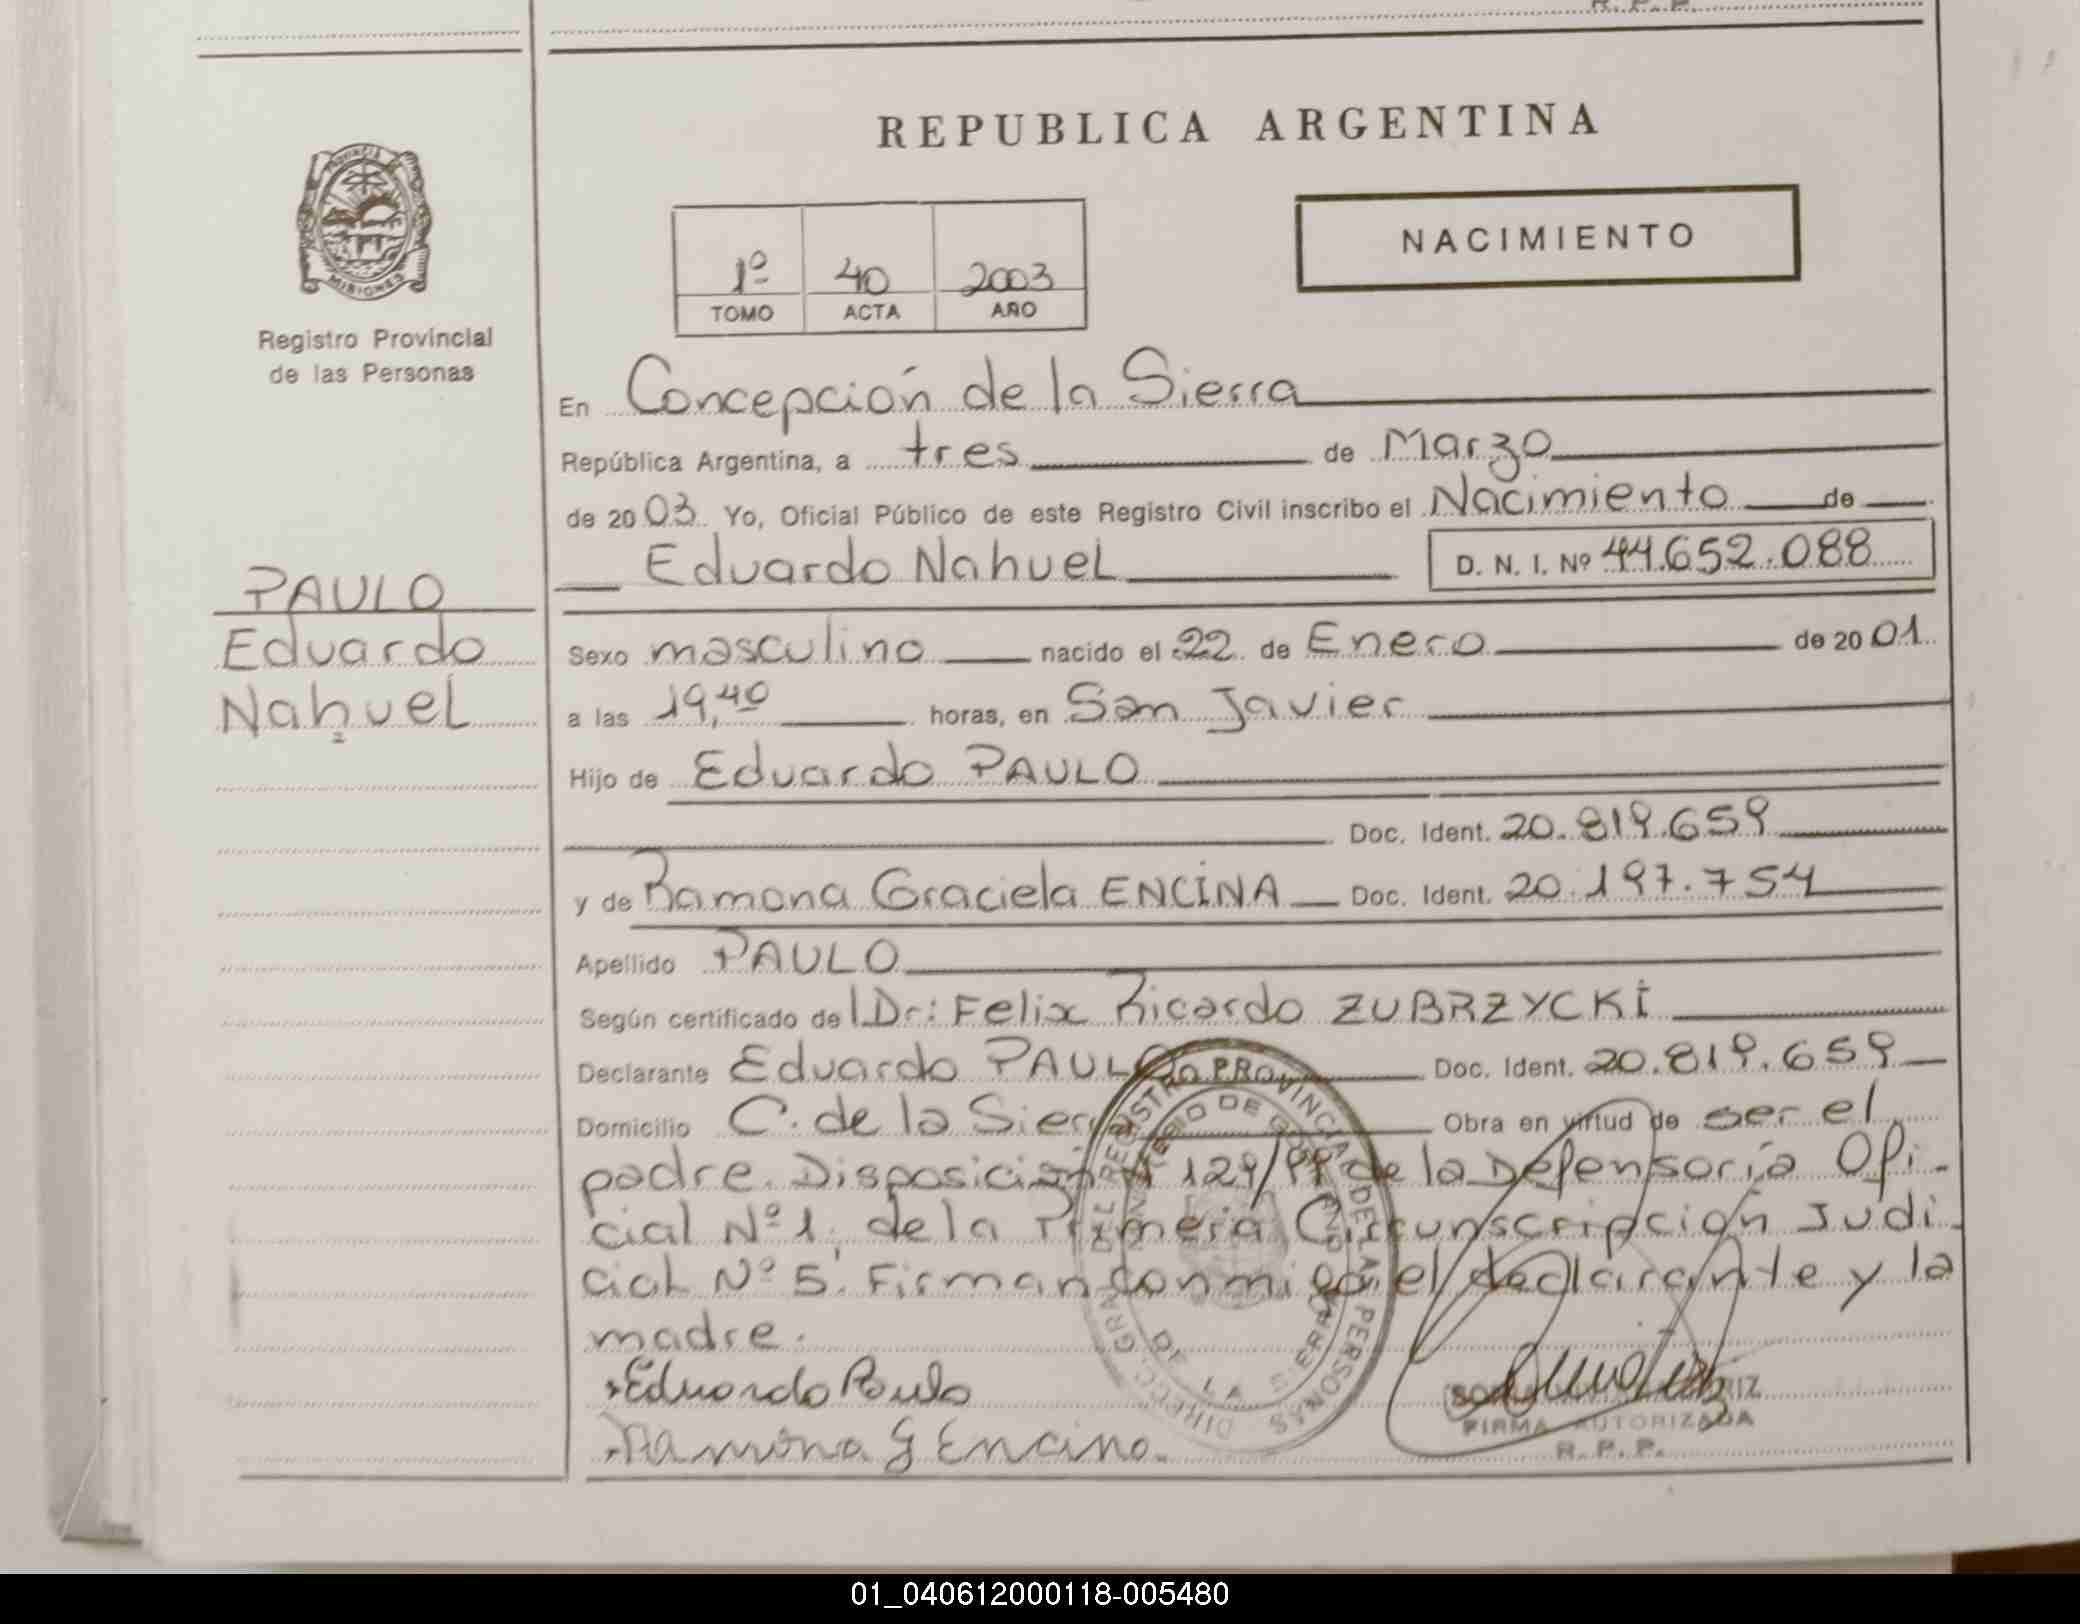 R. P. P.
REPUBLICA ARGENTINA
NACIMIENTO
1º 40 2003
TOMO ACTA AÑO
PROVINCIA
MISIONES
Registro Provincial
de las Personas
En Concepción de la Sierra
República Argentina, a tres de Marzo
de 2003. Yo, Oficial Público de este Registro Civil inscribo el Nacimiento de
Eduardo Nahuel D. N. I. Nº 44.652.088
PAULO
Eduardo
Nahuel
Sexo masculino nacido el 22 de Enero de 2001
a las 19,40 horas, en San Javier
Hijo de Eduardo PAULO
Doc. Ident. 20.819.659
y de Ramona Graciela ENCINA Doc. Ident. 20.197.754
Apellido PAULO
Según certificado del Dr: Felix Ricardo ZUBRZYCKI
Declarante Eduardo PAULO Doc. Ident. 20.819.659
Domicilio C. de la Sierra Obra en virtud de ser el
padre. Disposición Nº 129/99 de la Defensoría Ofi-
cial Nº 1, de la Primera Circunscripción Judi-
cial Nº 5. Firman conmigo el declarante y la
madre.
Eduardo Paulo
Ramona G Encina
DIRECC. GRAL. DEL REGISTRO PROVINCIAL DE LAS PERSONAS
MINISTERIO DE GOBIERNO
DE LA SIERRA
FIRMA AUTORIZADA
R. P. P.
01_040612000118-005480